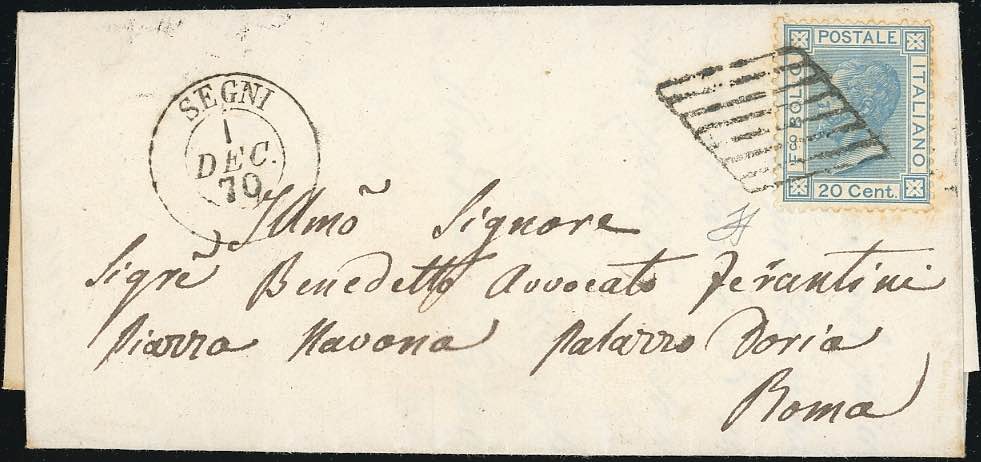 SEGNI
1
DEC.
70
POSTALE
ITALIANO
Fco BOLLO
20 Cent.
Illmõ Signore
Sigrẽ Benedetto Avvocato Ferantini
Piazza Navona Palazzo Doria
Roma